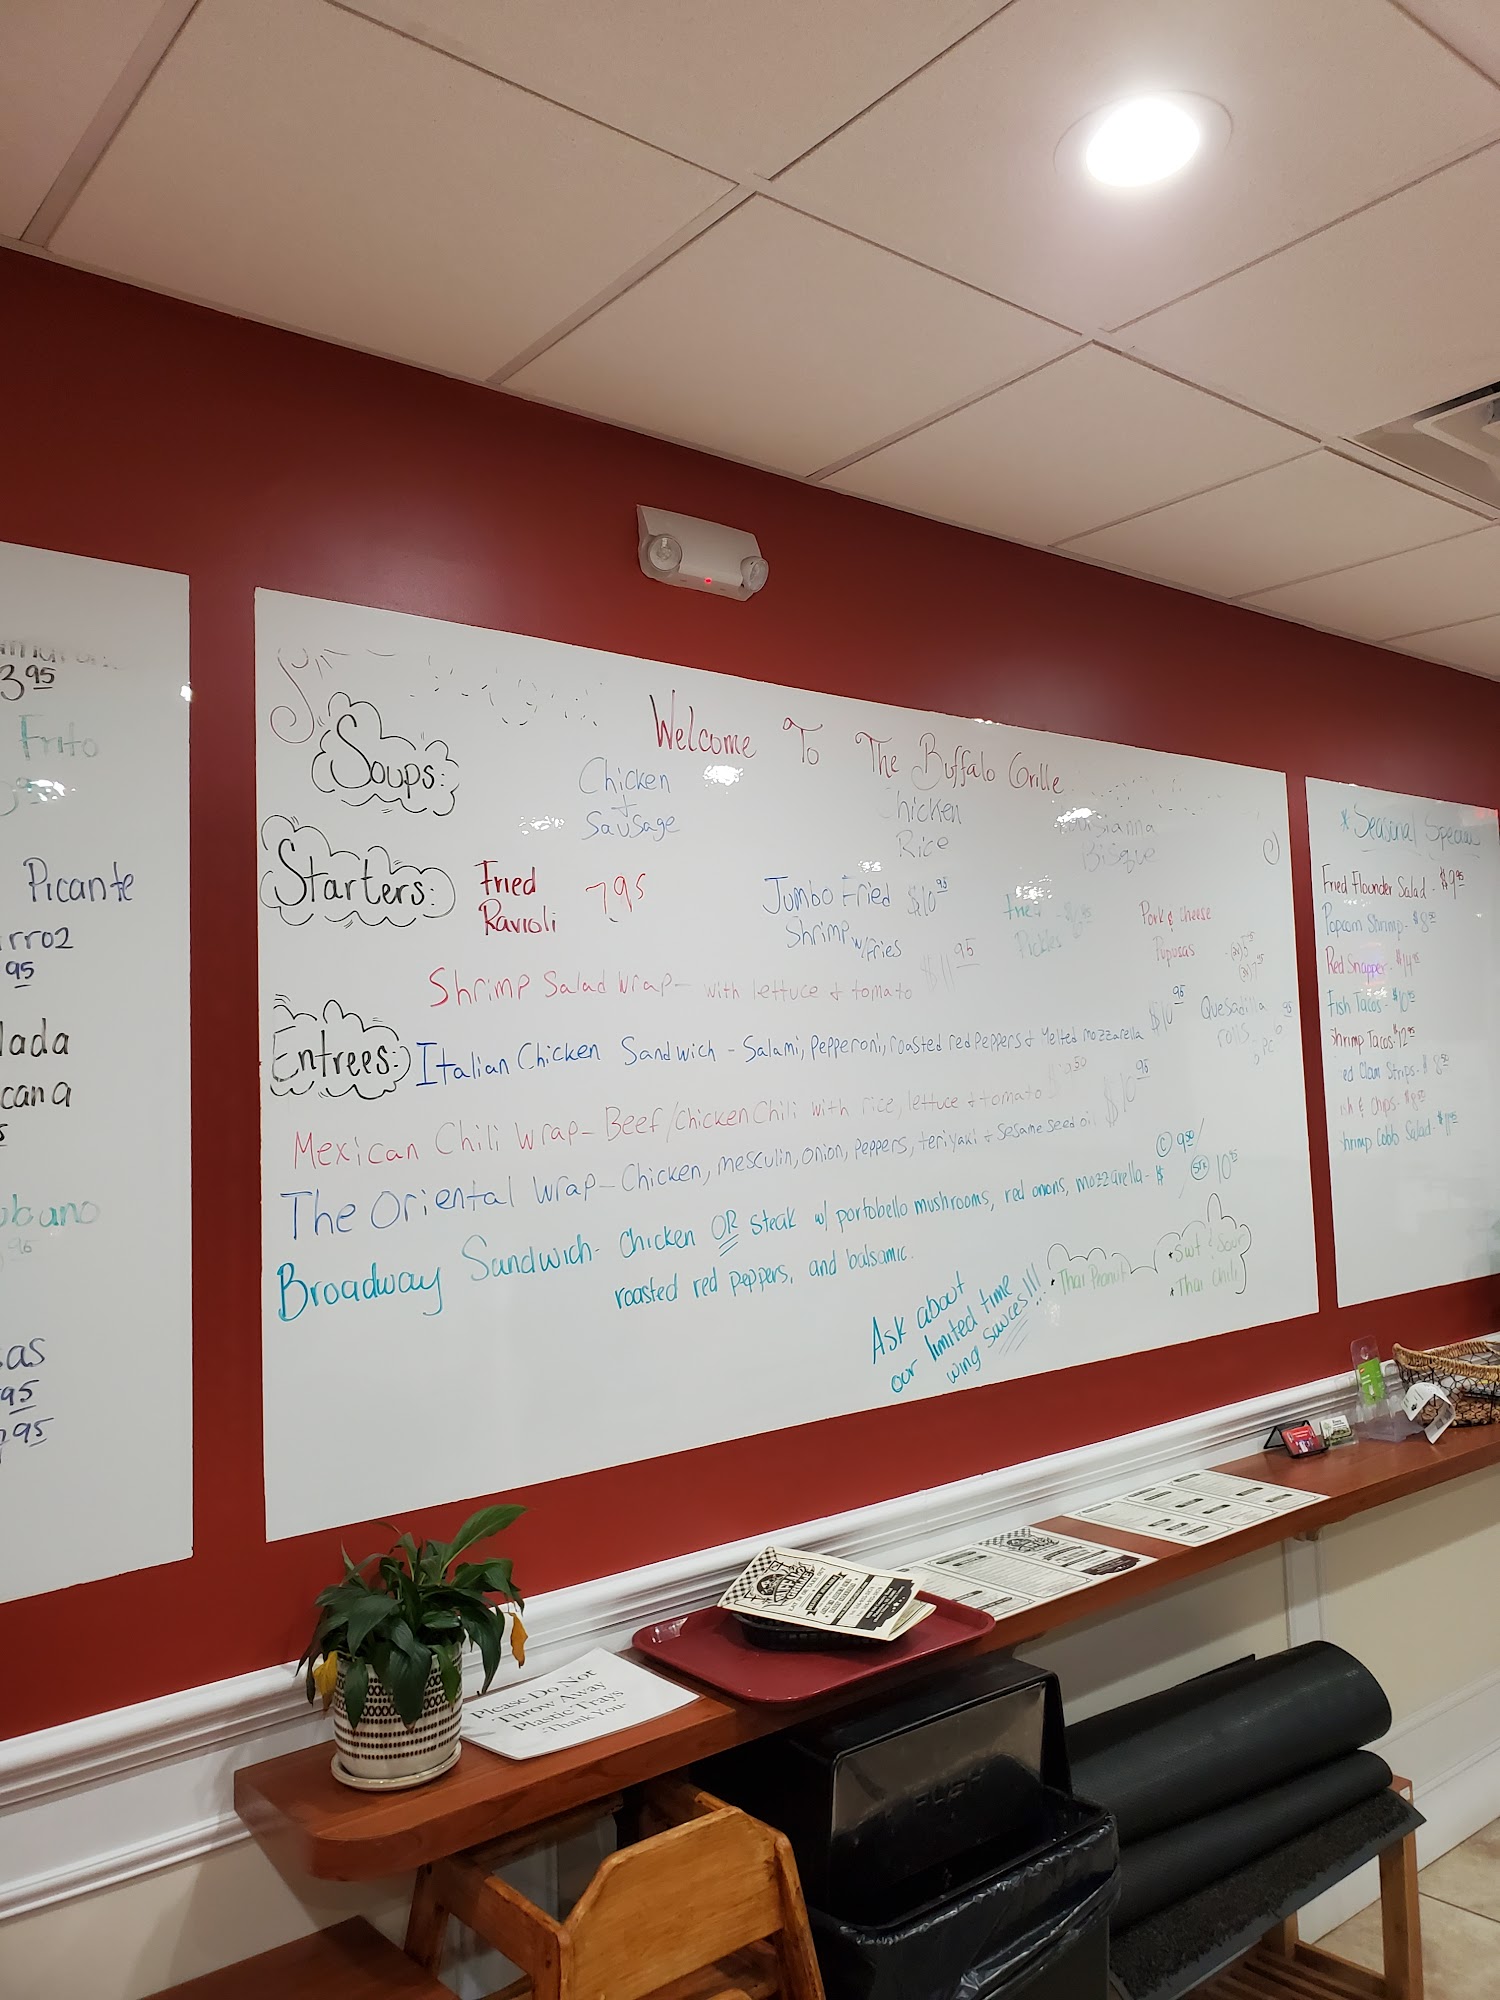 3 95
Frito
Picante
rroz
95
lada
cana
bano
95
as
95
95
Welcome To The Buffalo Grille
Soups:
Chicken
+
Sausage
Chicken
Rice
Louisianna
Bisque
Starters:
Fried
Ravioli
7.95
Jumbo Fried $10 95
Shrimp w/fries
Pickles
Pork & Cheese
Pupusas
Quesadilla
rolls
Entrees:
Shrimp Salad Wrap - with lettuce + tomato $11 95
Italian Chicken Sandwich - Salami, Pepperoni, roasted red Peppers + Melted mozzarella $10 95
Mexican Chili Wrap - Beef/Chicken Chili with rice, lettuce + tomato
The Oriental Wrap - Chicken, mesculin, onion, peppers, teriyaki + Sesame seed oil $10 95
Broadway Sandwich - Chicken OR Steak w/ portobello mushrooms, red onions, mozzarella - $ (C) 9 50 / (STK) 10 95
roasted red peppers, and balsamic.
Ask about
our limited time
wing sauces!!!
• Thai Peanut
• Swt & Sour
• Thai Chili
* Seasonal Specials
Fried Flounder Salad - $9 95
Popcorn Shrimp - $8 50
Red Snapper - $14 95
Fish Tacos - $10 95
Shrimp Tacos - $12 95
ed Clam Strips - $8 50
sh & Chips -
hrimp Cobb Salad - $11 95
Please Do Not
Throw Away
Plastic Trays
-Thank You-